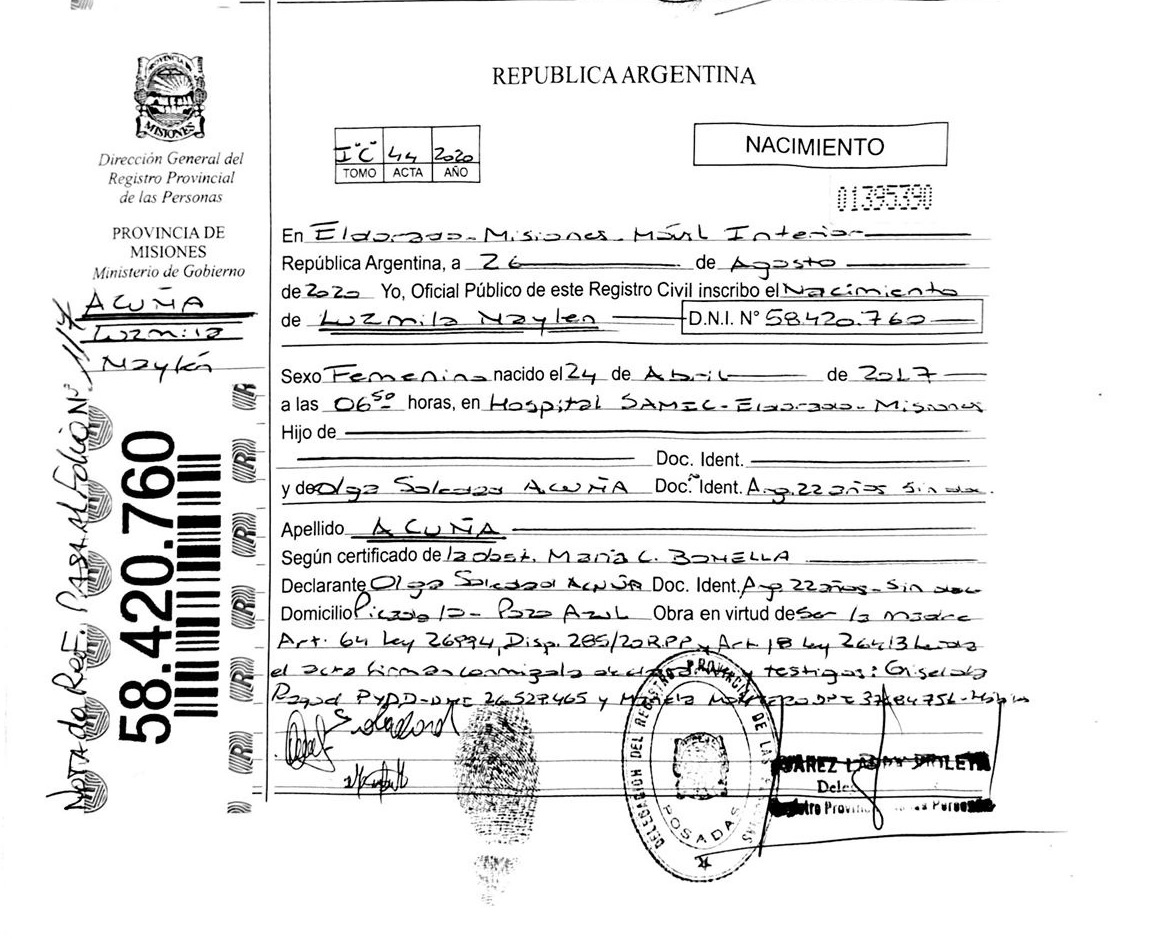 REPUBLICA ARGENTINA
PROVINCIA
MISIONES
Dirección General del
Registro Provincial
de las Personas
PROVINCIA DE
MISIONES
Ministerio de Gobierno
ACUÑA
Luzmila
Naylén
Nota de Ref. PASA al Folio Nº 117
58.420.760
I"C" 44 2020
TOMO ACTA AÑO
NACIMIENTO
01395390
En Eldorado - Misiones - Móvil Interior
República Argentina, a 26 de Agosto
de 2020 Yo, Oficial Público de este Registro Civil inscribo el Nacimiento
de Luzmila Naylen D.N.I. N° 58.420.760
Sexo Femenino nacido el 24 de Abril de 2017
a las 06⁵⁰ horas, en Hospital SAMIC - Eldorado - Misiones
Hijo de
Doc. Ident.
y de Olga Soledad ACUÑA Doc. Ident. Arg. 22 años Sin doc.
Apellido ACUÑA
Según certificado de la obst. Maria C. BONELLA
Declarante Olga Soledad ACUÑA Doc. Ident. Arg 22 años - Sin doc
Domicilio Picada 10 - Pozo Azul Obra en virtud de Ser la madre
Art. 64 Ley 26994, Disp. 285/20 R.P.P. Art 18 Ley 26413 Leida
el acta firman conmigo la y testigos: Gisela
26.529.465 y
Soledad
DELEGACION DEL REGISTRO PROVINCIAL DE LAS
POSADAS
Registro Provin Personas